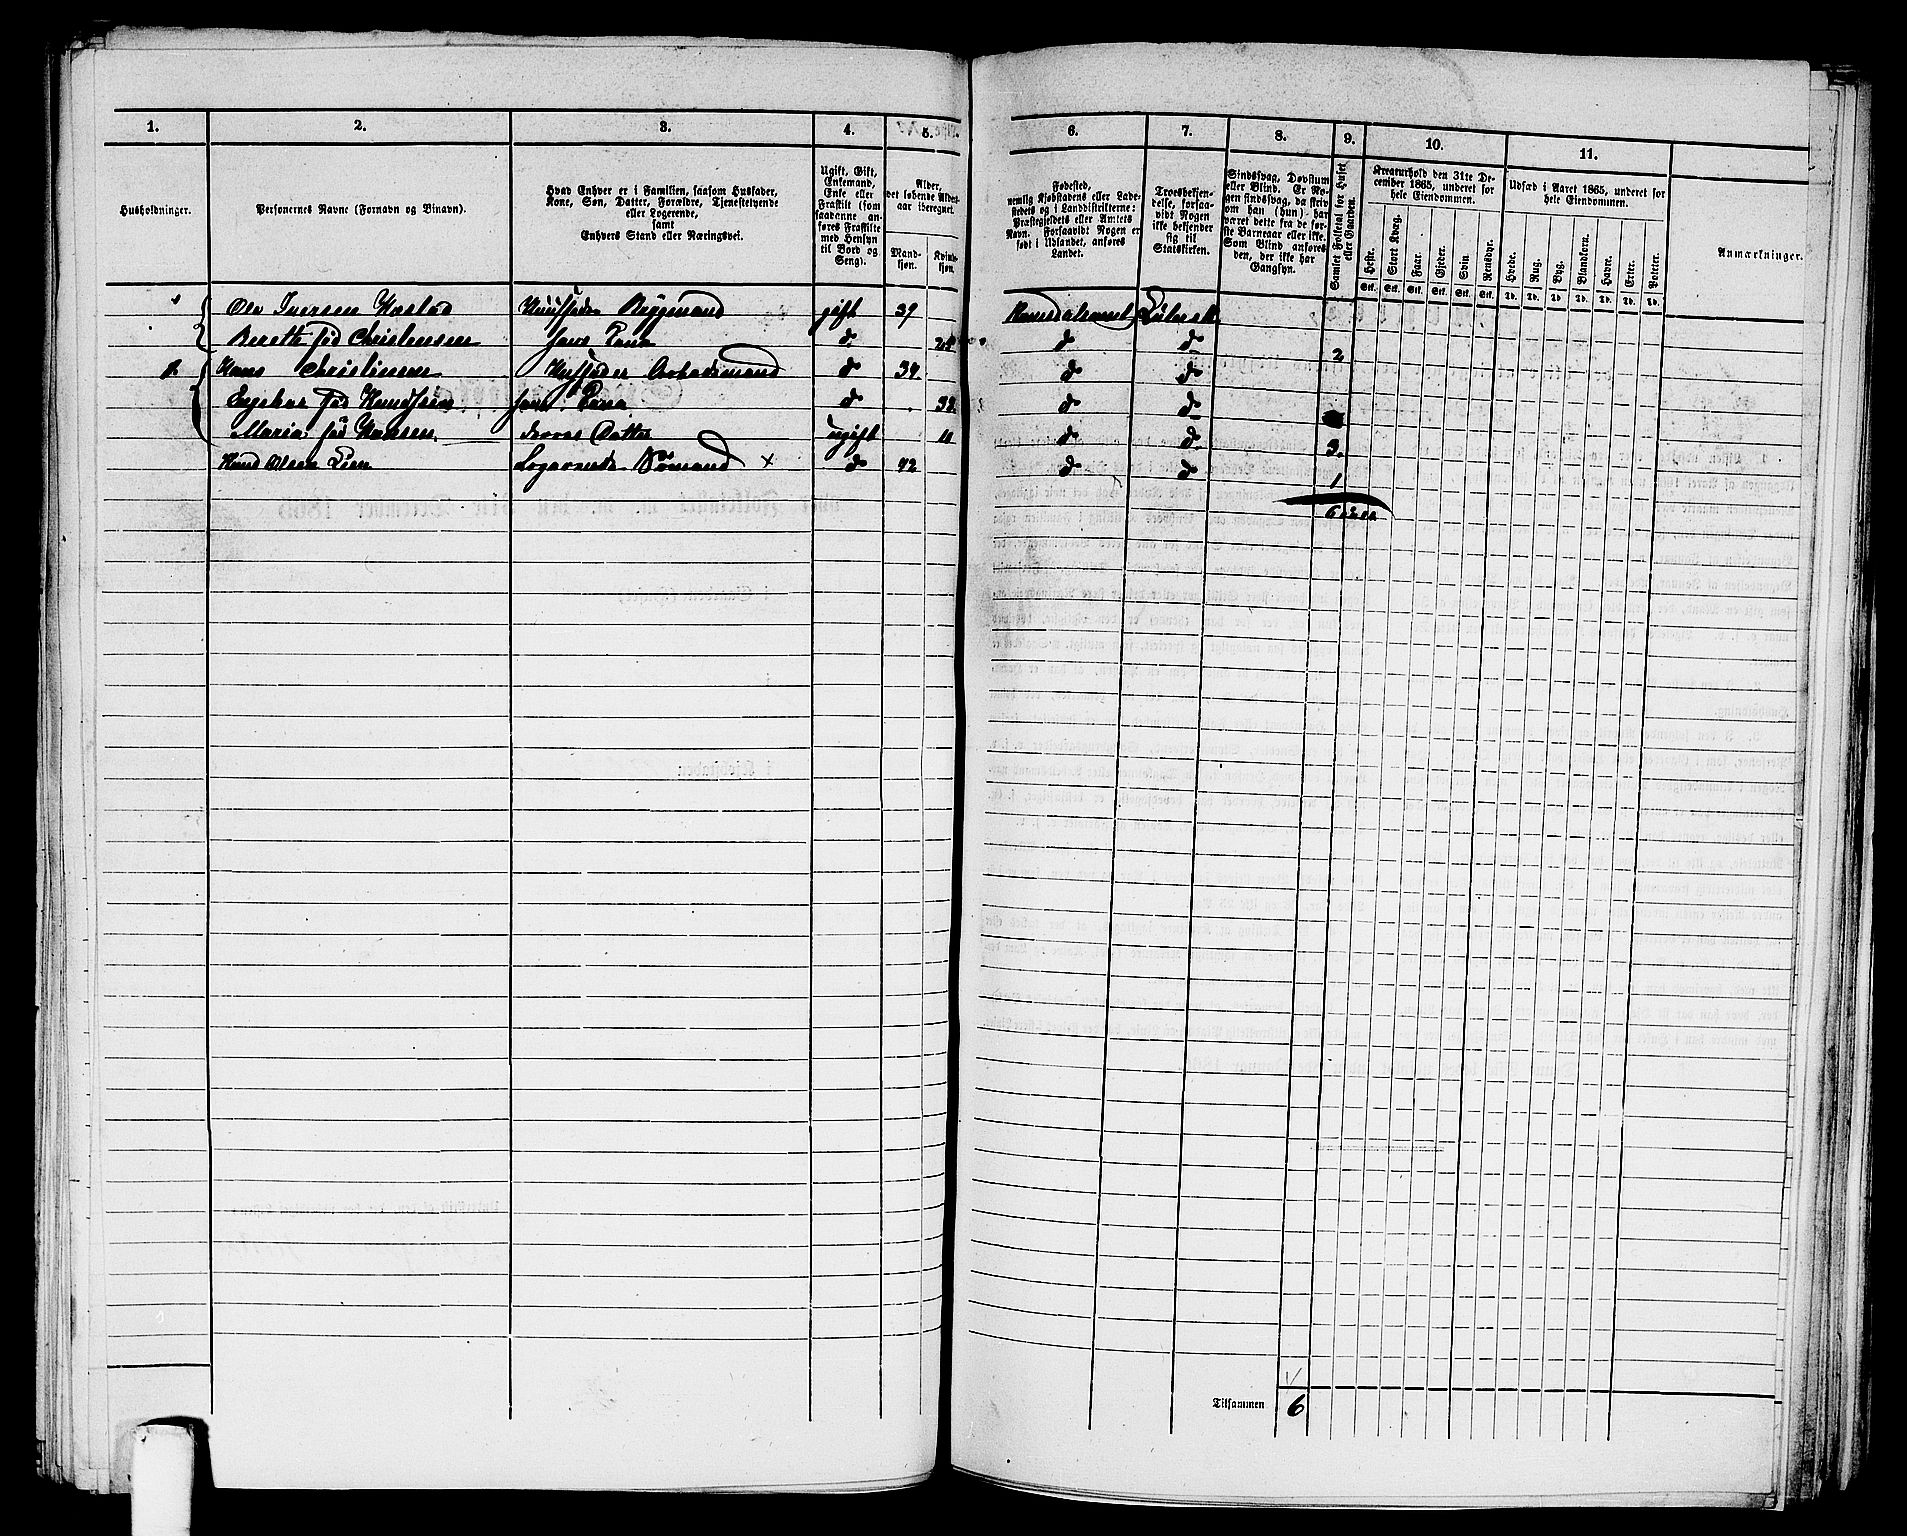 1. 2. 3. 4. 5. 6. 7. 8. 9. 10. 11.
Husholdninger.
Personernes Navne (Fornavn og Binavn).
Hvad Enhver er i Familien, saasom Husfader,
Kone, Søn, Datter, Forældre, Tjenestetyende
eller Logerende,
samt
Enhvers Stand eller Næringsvei.
Ugift, Gift,
Enkemand,
Enke eller
Fraskilt (som
saadanne an-
føres Fraskilte
med Hensyn
til Bord og
Seng).
Alder,
det løbende Alders-
aar iberegnet.
Mand-
kjøn.
Kvind-
kjøn.
Fødested,
nemlig Kjøbstadens eller Lade-
stedets og i Landdistrikterne:
Præstegjeldets eller Amtets
Navn. Forsaavidt Nogen er
født i Udlandet, anføres
Landet.
Troesbekjen-
delse, forsaa-
vidt Nogen
ikke bekjender
sig til
Statskirken.
Sindssvag, Døvstum
eller Blind. Er No-
gen sindssvag, da skriv
om han (hun) har
været dette fra de før-
ste Barneaar eller ikke.
Som Blind anføres
den, der ikke har
Gangsyn.
Samlet Folketal for Huset
eller Gaarden.
Kreaturhold den 31te De-
cember 1865, underet for
hele Eiendommen.
Heste. Stort Kvæg. Faar. Gjeder. Svin. Rensdyr.
Stk. Stk. Stk. Stk. Stk. Stk.
Udsæd i Aaret 1865, underet for
hele Eiendommen.
Hvede. Rug. Byg. Blandkorn. Havre. Erter. Poteter.
Td. Td. Td. Td. Td. Td. Td.
Anmærkninger.
Ole Iversen Hostad Huusfader Bygmand gift 39 Romsdalsamt Luthersk
Berette fød Christensen hans Kone d. d d 2
2. Hans Christiansen Husfader Arbeidsmand d 34. d d
Ingebor fød Knudsen hans Kone d 33. d d
Maria fød Hansen deres Datter ugift 11 d d 3.
Knud Olsen Lien Logerende Bømand x d 42 d d 1
6
Tilsammen 6